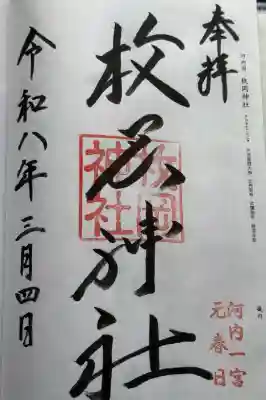 枚岡神社
奉拝
河内一宮
元春日
枚岡神社
枚岡神社
令和八年三月四日